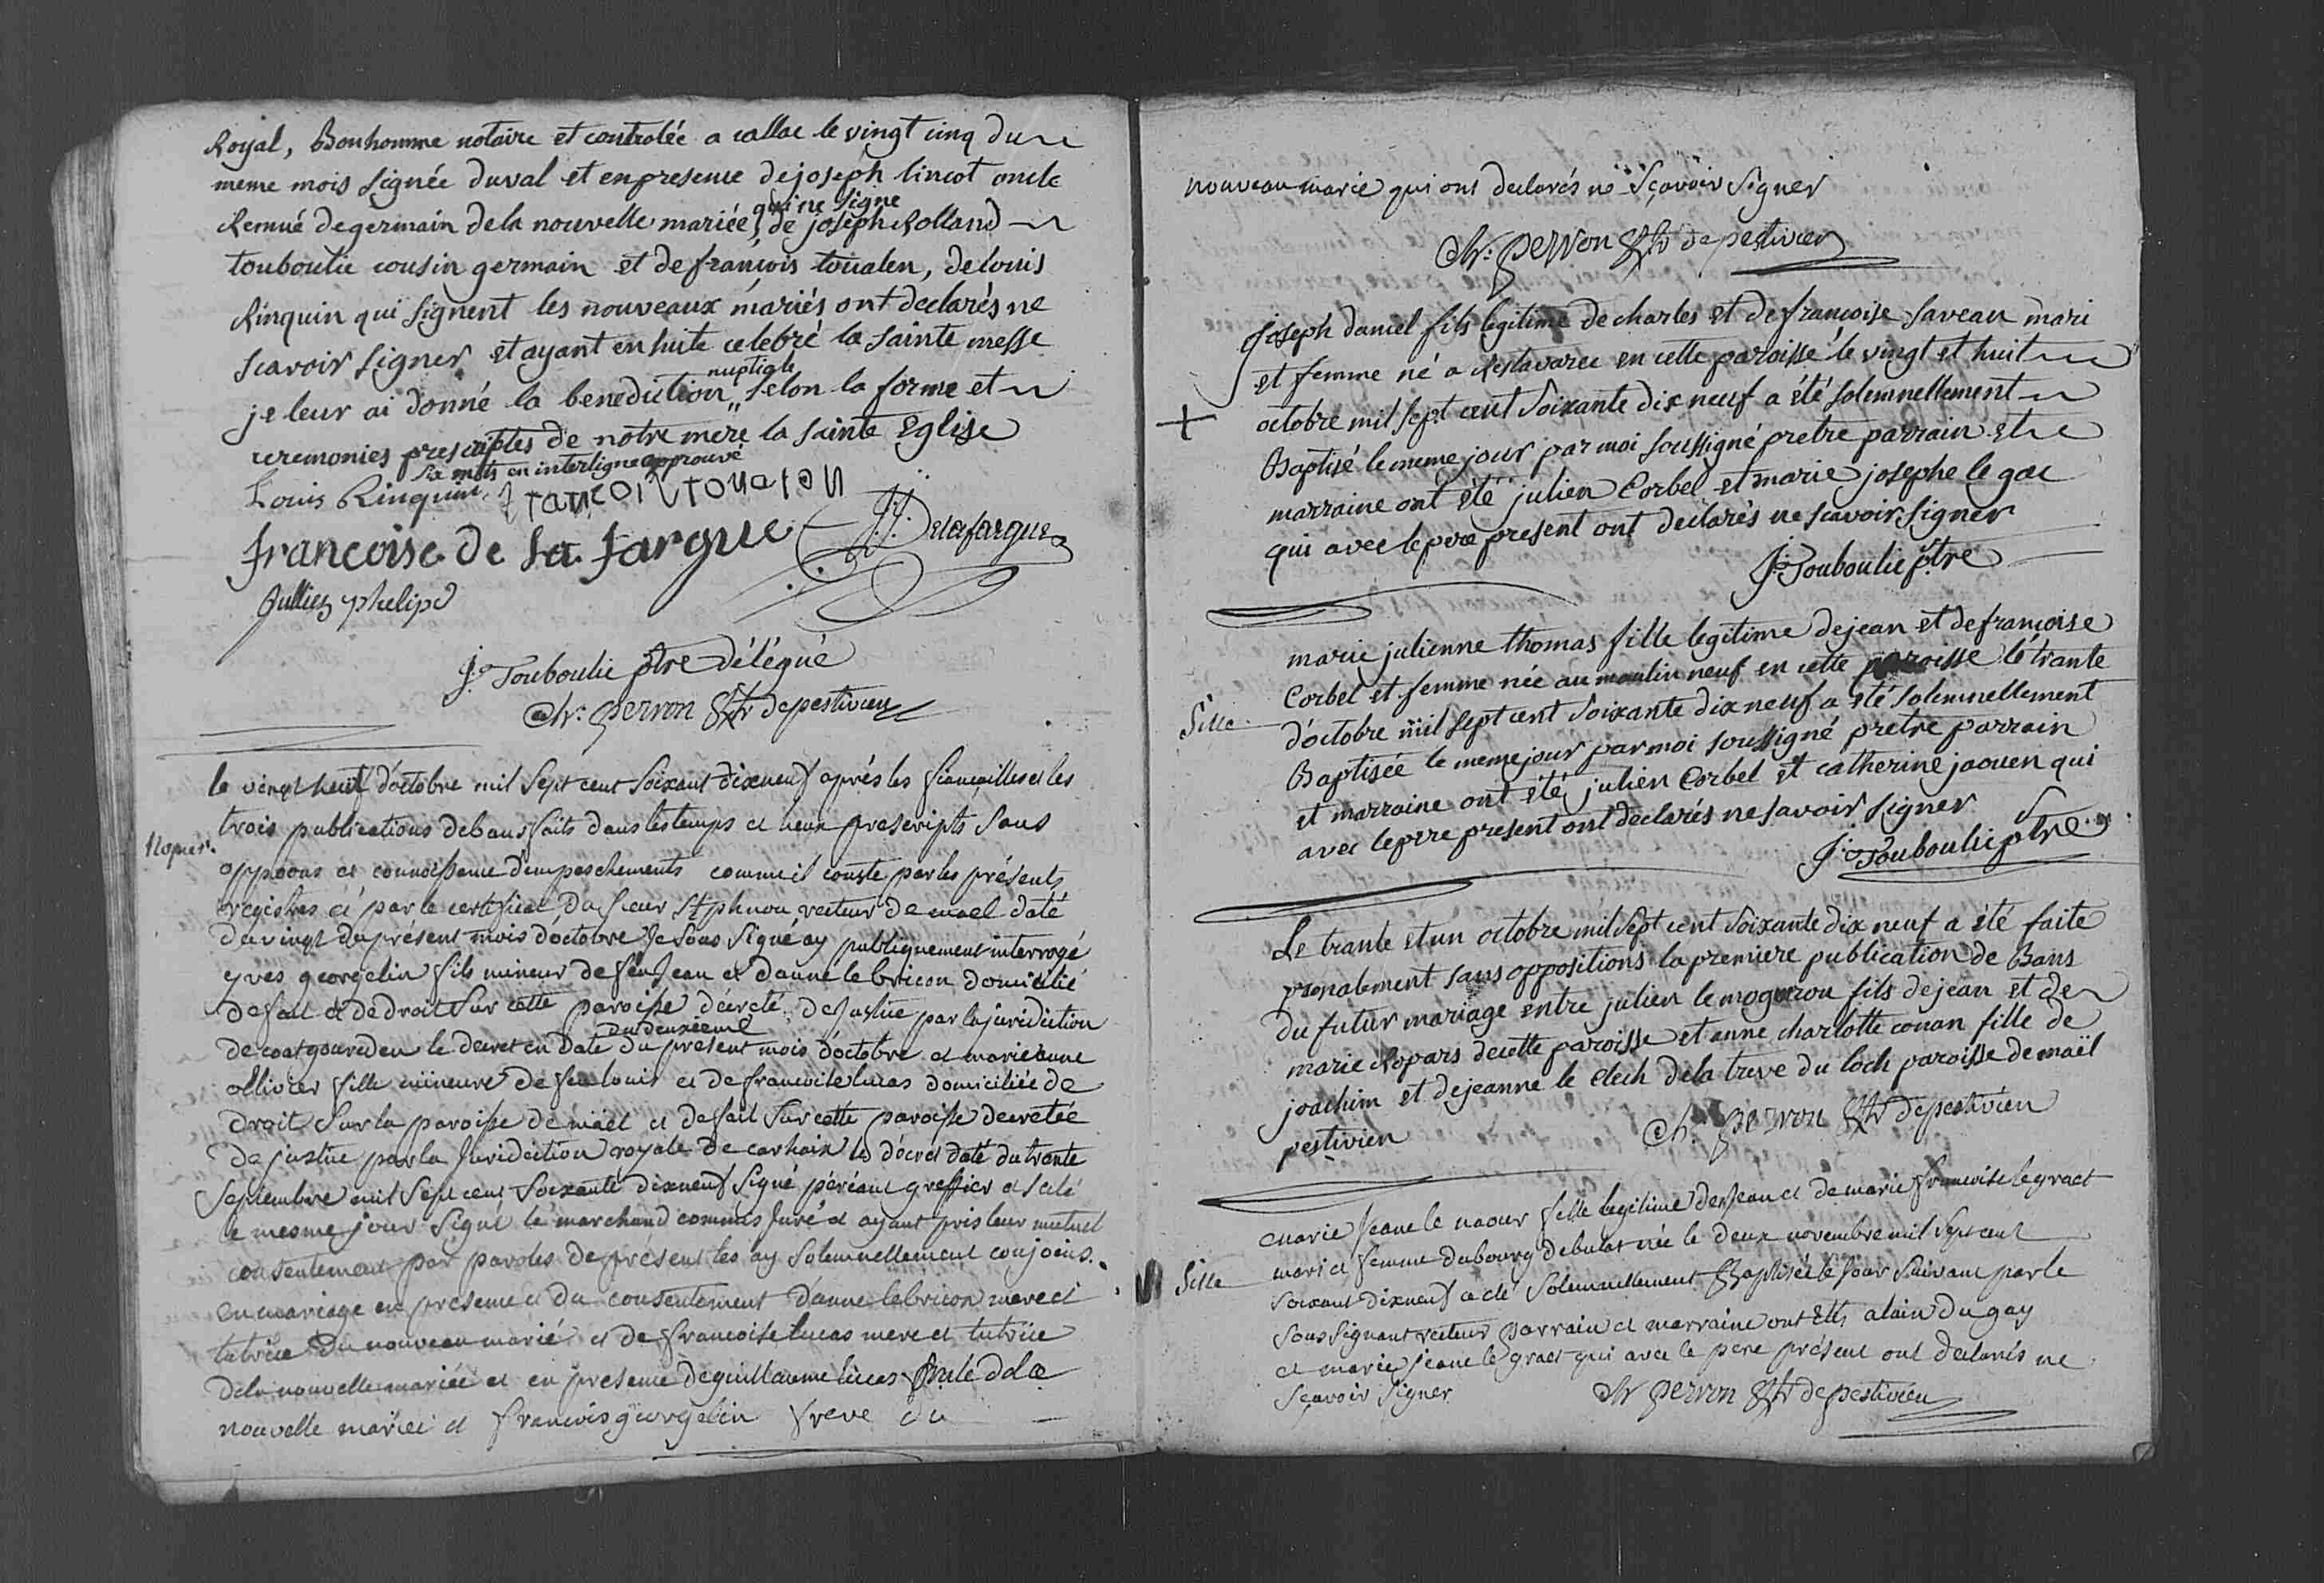 Royal, Bonhomme notaire et controlée a callac le vingt cinq du
meme mois signée duval et en presence de joseph lincot oncle
qui ne signe
Remué de germain de la nouvelle mariée, de joseph Rolland
touboulic cousin germain et de françois toualen, de louis
Rinquin qui signent les nouveaux mariés ont déclarés ne
scavoir signer et ayant en suite celebré la sainte messe
nuptiale
je leur ai donné la benediction selon la forme et
ceremonies prescriptes de notre mere la sainte Eglise
six mots en interligne approuvé
Louis Rinquin françois toualen
françoise de la fargue J. J. Delafargue
Jullien phelipe
J. Touboulic ptre délégué
Ch: perron Rtr de pestivien
le vingt neuf d'octobre mil sept cent soixant dixneuf aprés les fiancailles et les
trois publications de bans faits dans les temps et lieux prescripts sans
Nopces.
oppoons et connoissance d'empeschements comme il conste par les présents
registres et par le certificat du sieur Stphunou recteur de mael daté
du vingt du présent mois d'octobre Je sous signé ay publiquement interrogé
yves georgelin fils mineur de feu Jean et d'anne le bricon domicilié
de fait et de droit sur cette paroisse décreté de Justice par la juridiction
du deuxieme
de coatgoureden le decret en date du présent mois d'octobre et marie anne
ollivier fille mineure de feu louis et de francoise lucas domiciliée de
droit sur la paroisse de mäel et de fait sur cette paroisse decretée
de justice par la Juridiction royale de carhaix le décret daté du trante
septembre mil sept cent soixante dixneuf signé péréant greffier et scelé
le mesme jour signé le marchand commis Juré et ayant pris leur mutuel
consentement par paroles de présent les ay solemnellement conjoins
en mariage en presence et du consentement d'anne lebricon mere et
tutrice du nouveau marié et de francoise lucas mere et tutrice
de la nouvelle mariée et en presence de guillaume lucas oncle de la
nouvelle mariée et francois georgelin frere du
nouveau marié qui ont declarés ne sçavoir signer
Ch: perron Rtr de pestivien
joseph daniel fils legitime de charles et de françoise saveau mari
et femme né a Keslavarec en cette paroisse le vingt et huit
+
octobre mil sept cent soixante dix neuf a été solemnellement
Baptisé le meme jour par moi soussigné pretre parrain et
marraine ont été julien Corbel et marie josephe le gac
qui avec le pere present ont declarés ne scavoir signer
J. Touboulic ptre
marie julienne thomas fille legitime de jean et de françoise
Corbel et femme née au moulin neuf en cette paroisse le trante
fille
d'octobre mil sept cent soixante dix neuf a été solemnellement
Baptisée le meme jour par moi soussigné pretre parrain
et marraine ont été julien Corbel et catherine jaouen qui
avec le pere present ont declarés ne savoir signer
J. Touboulic ptre
Le trante et un octobre mil sept cent soixante dix neuf a été faite
pronalement sans oppositions la premiere publication de Bans
du futur mariage entre julien le mogueron fils de jean et de
marie Ropars de cette paroisse et anne charlotte conan fille de
joachim et de jeanne le clech de la treve du loch paroisse de maël
pestivien
Ch: perron Rtr de pestivien
marie Jeane le naour fille legitime de Jean et de marie francoise le gract
mari et femme du bourg de bulat née le deux novembre mil sept cent
fille
soixant dixneuf a eté solemnellement Baptisée le Jour suivant par le
sous signant recteur parrain et marraine ont Eté alain du gay
et marie jeane le gract qui avec le pere présent ont declarés ne
sçavoir signer
Ch perron Rtr de pestivien